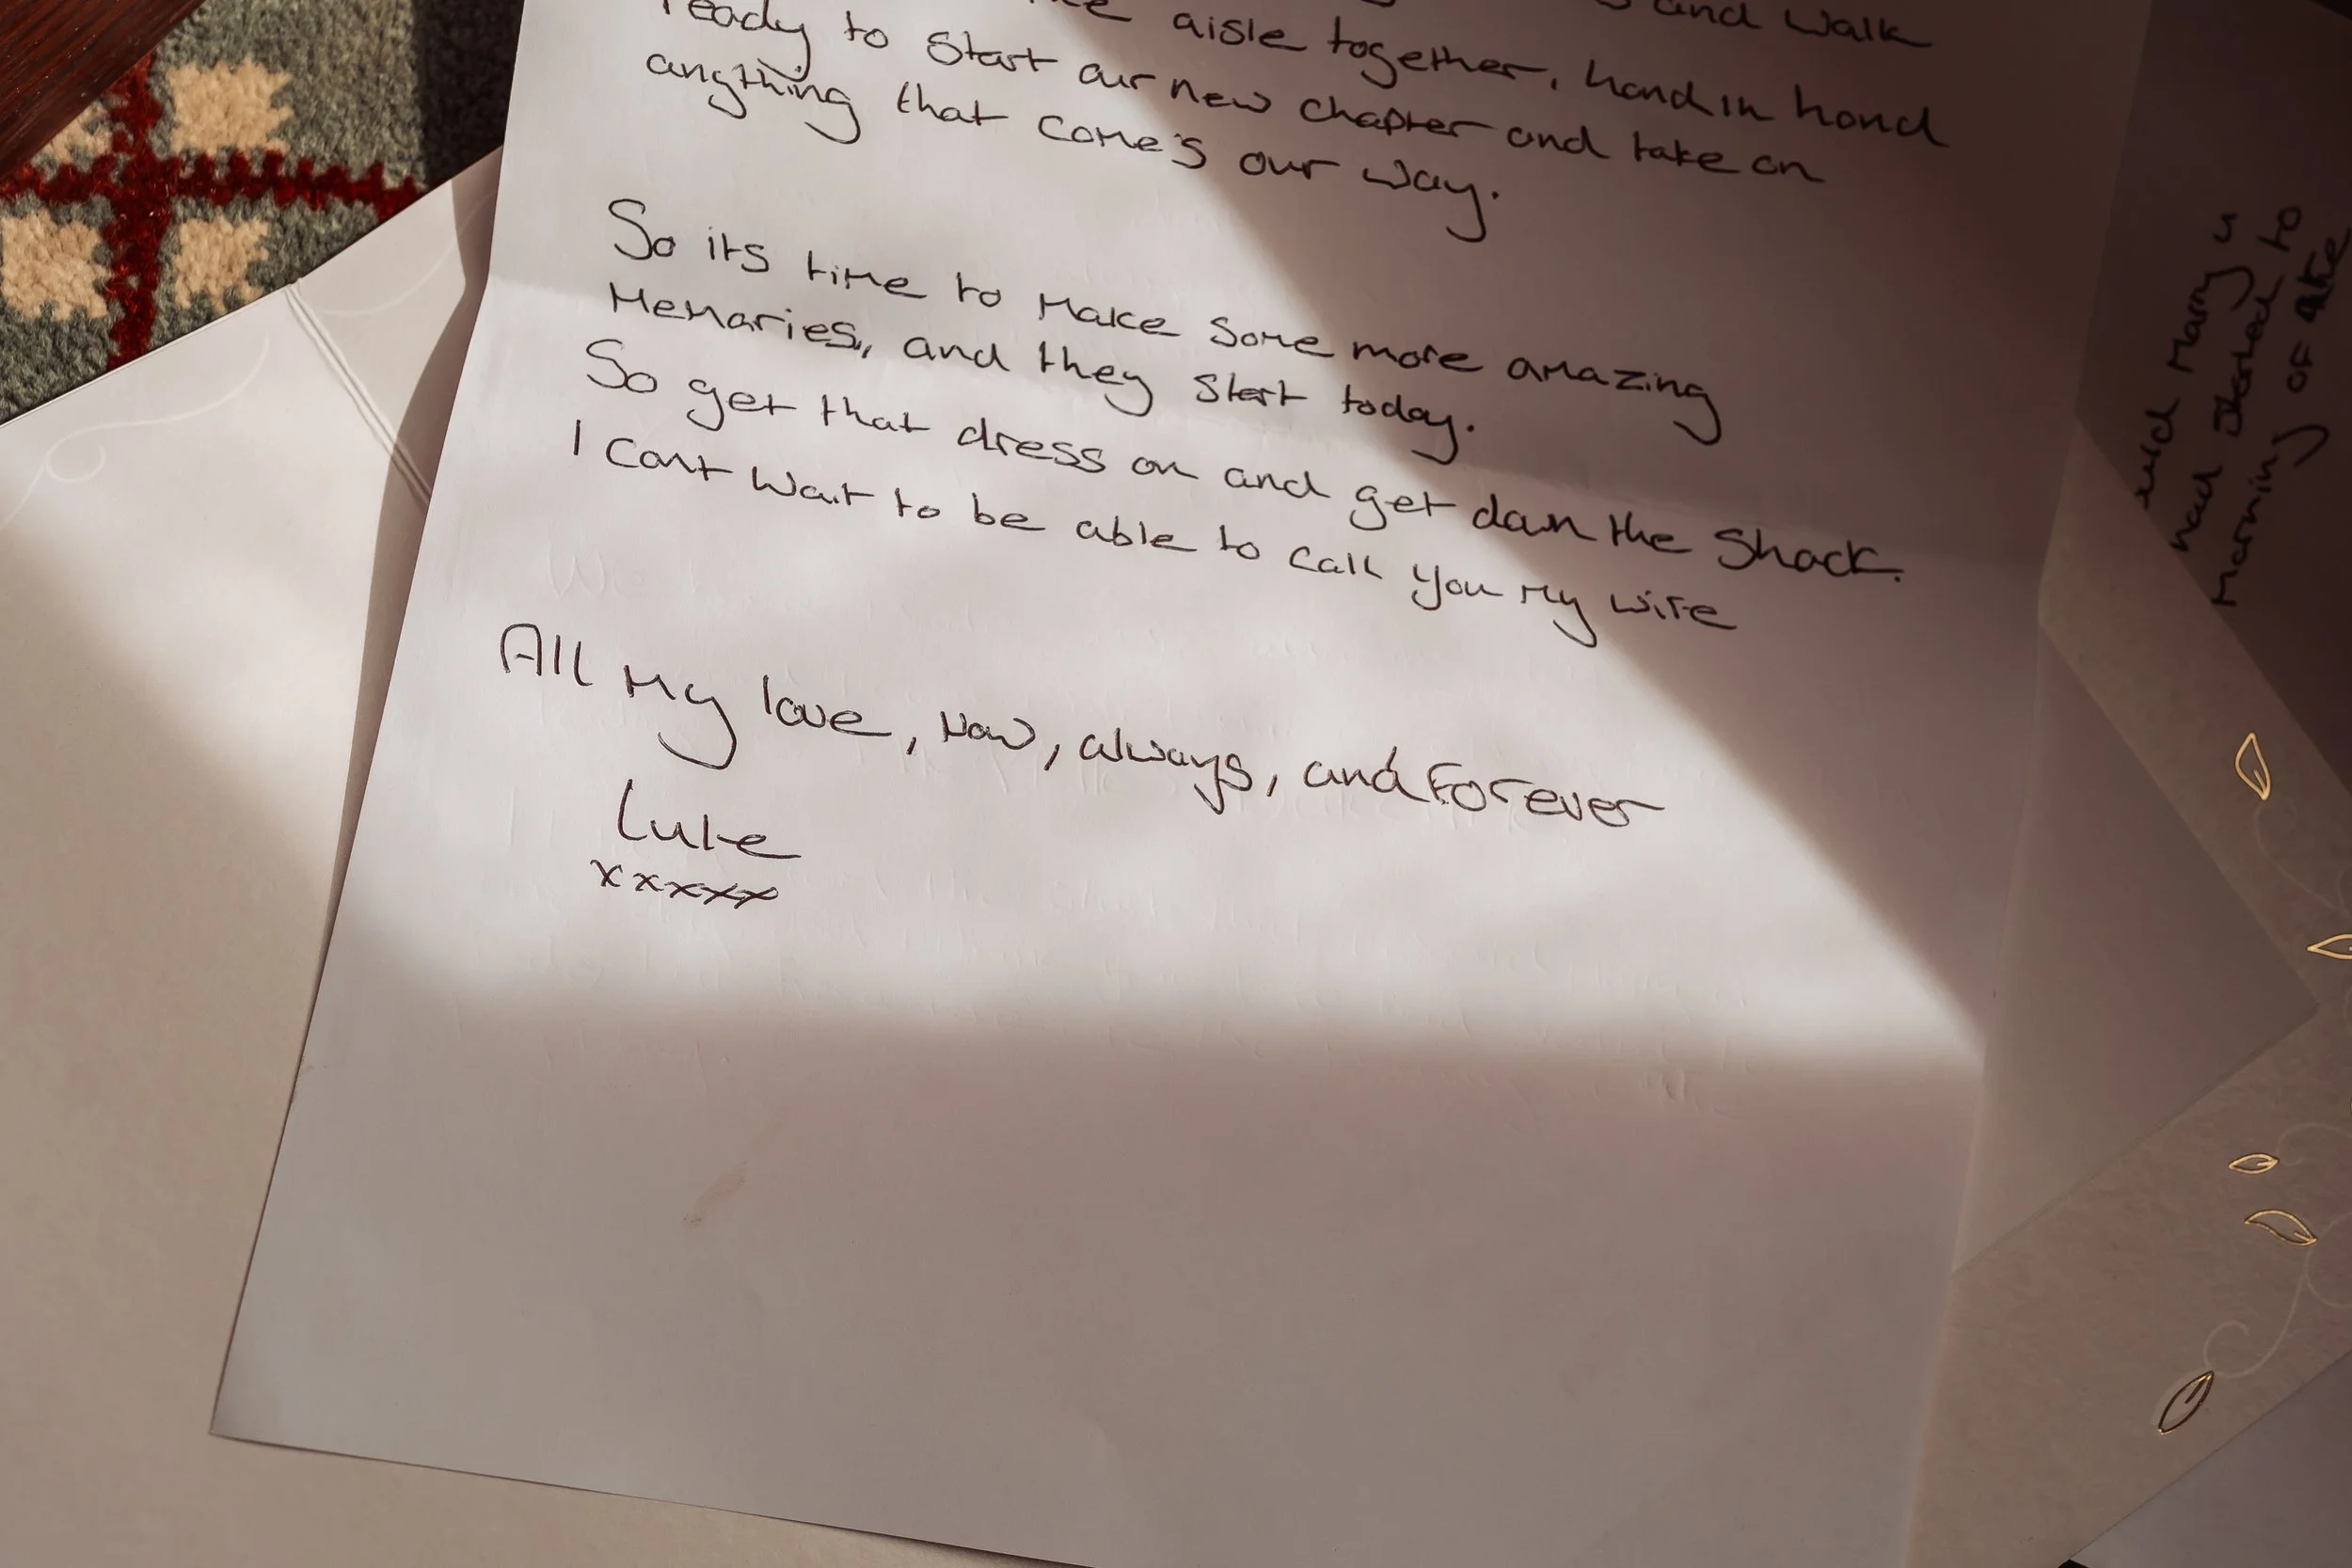 and walk
aisle together, hand in hand
ready to start our new chapter and take on
anything that come's our way.
So its time to make some more amazing
memories, and they start today.
So get that dress on and get down the Shack.
I cant wait to be able to call you my wife
All my love, now, always, and forever
Luke
xxxxx
marry
had started to
morning of